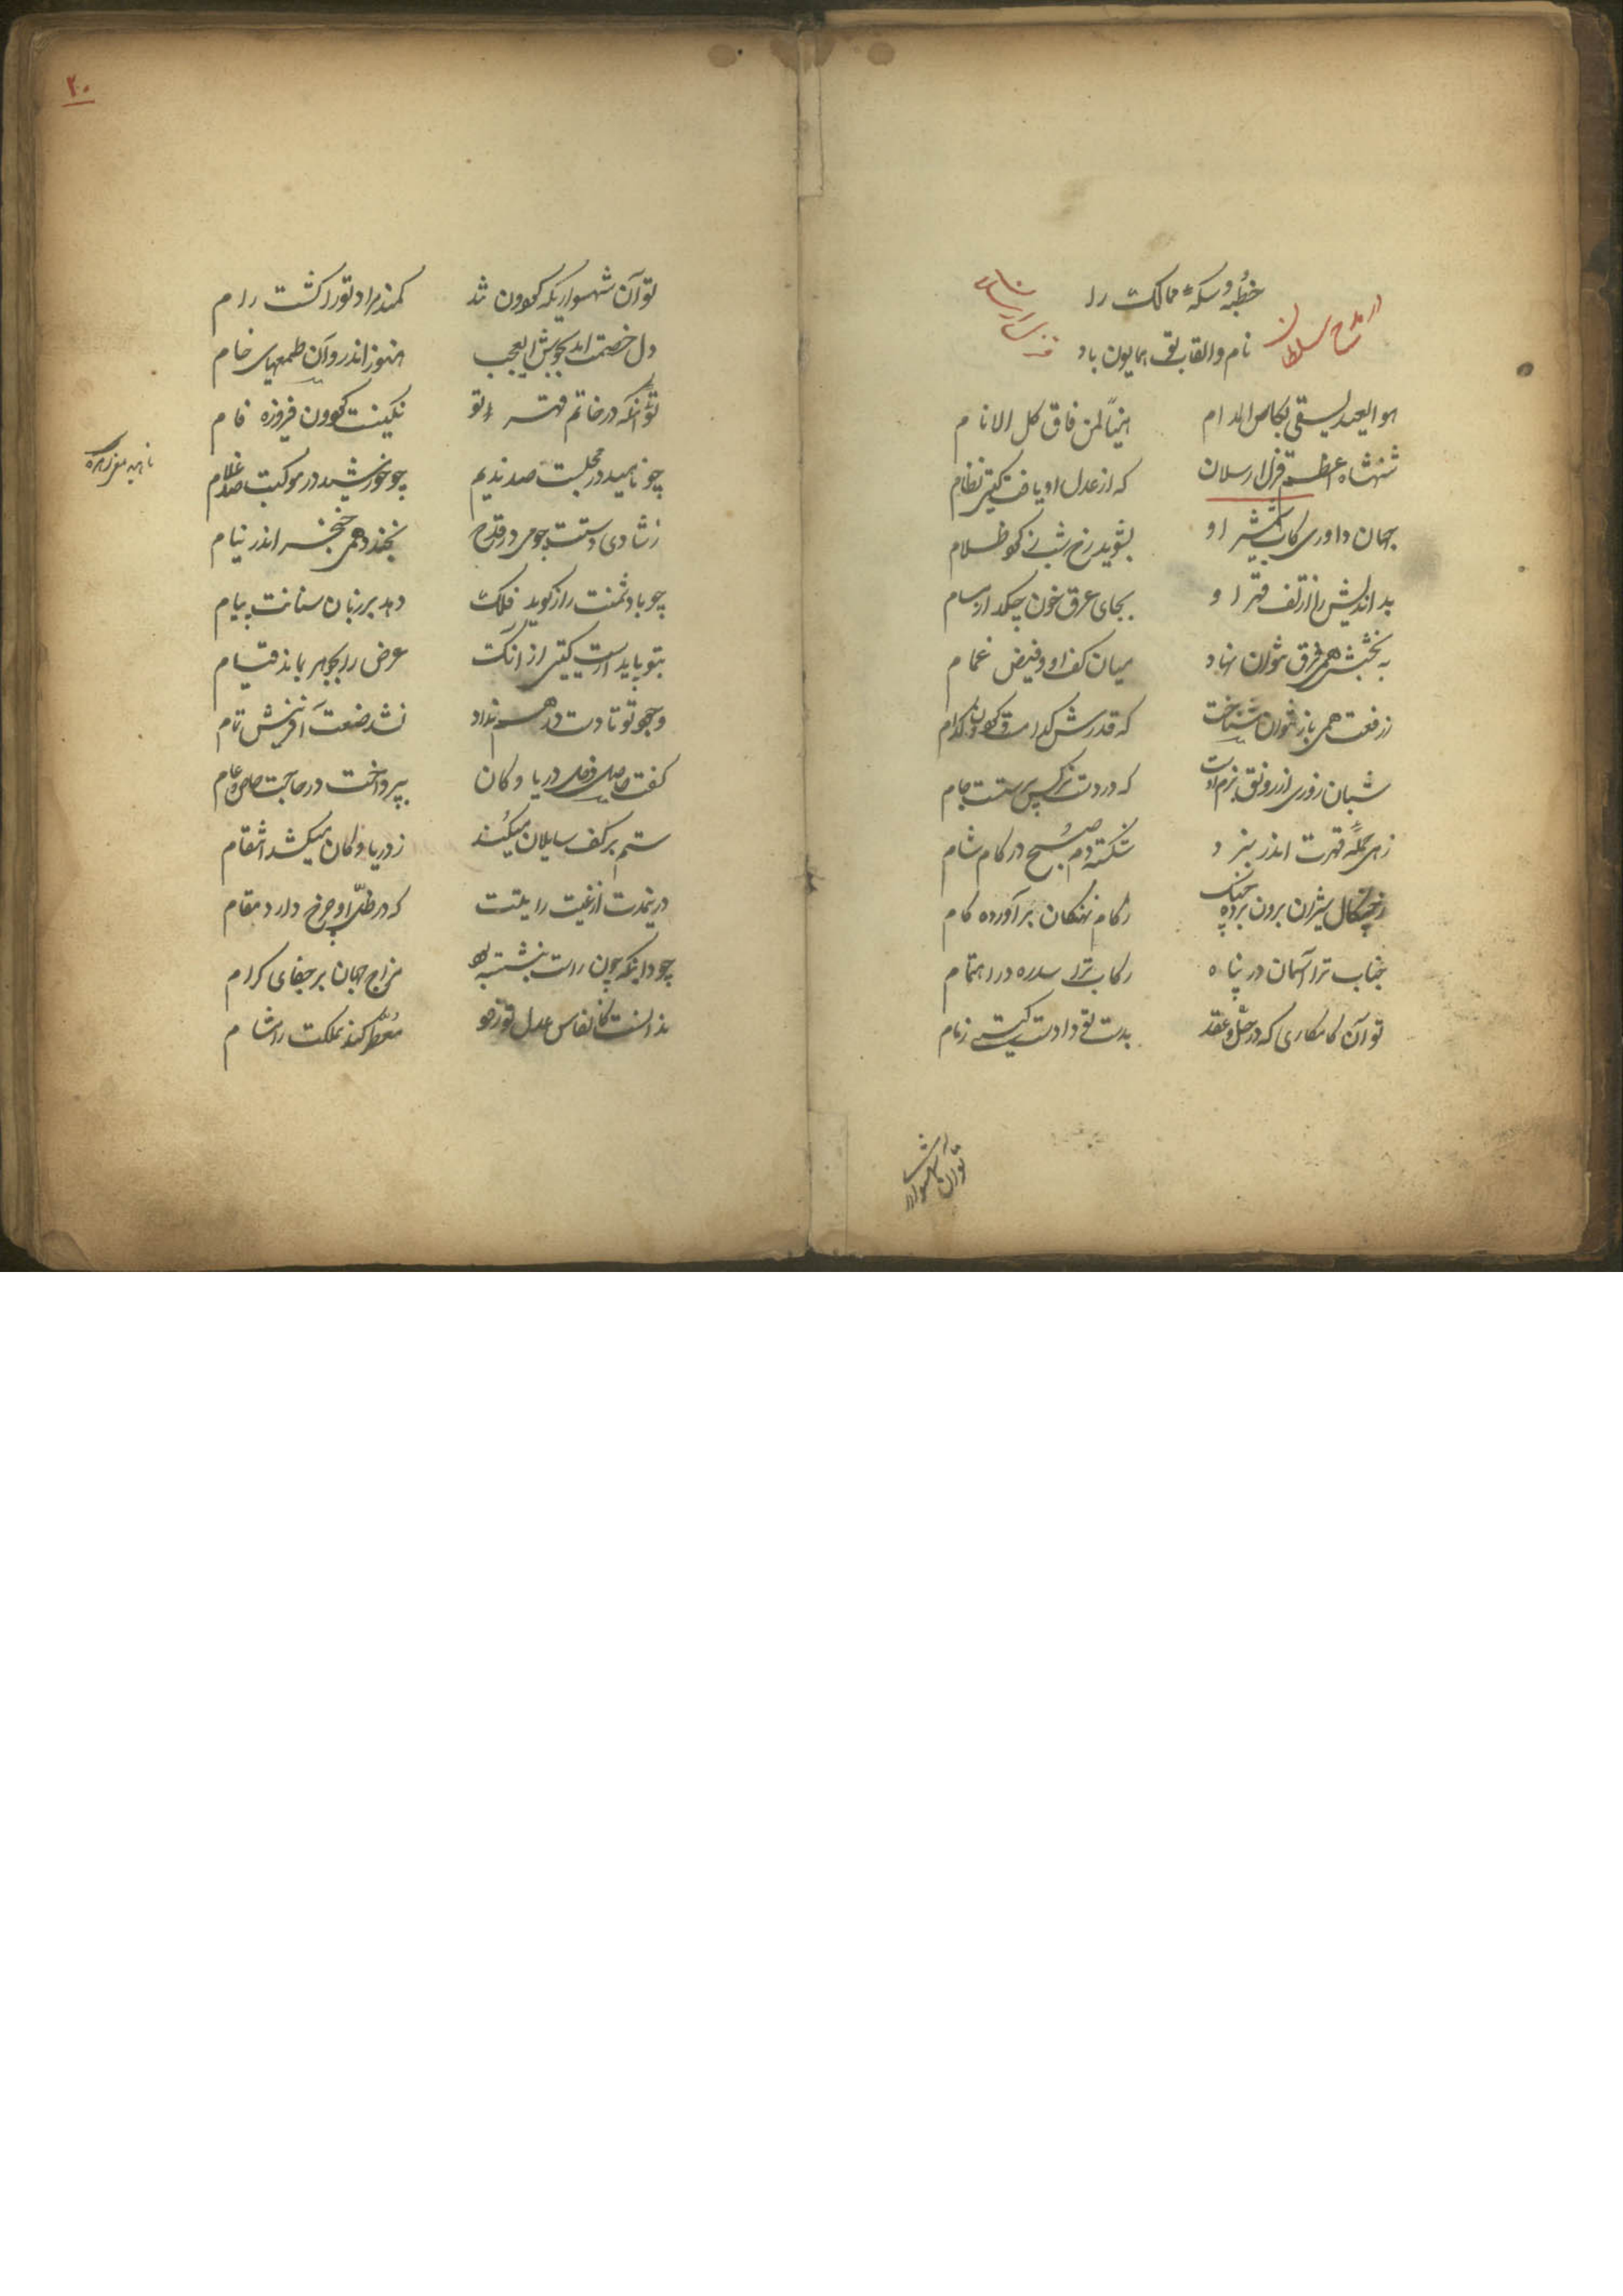 خطبه و سکهٔ ممالک را
نام و القاب تو همایون باد
از مدح سلطان
هو العید یسقی بکاس المدام هنیّا لمن فاق کل الانام
شهنشاه اعظم قزل ارسلان که از عدل او یافت گیتی نظام
جهان داوری کاب شمشیر او بشوید رخ شب ز کفر ظلام
بداندیش را از تف قهر او بجای عرق خون چکد از مسام
به بخشش همی فرق نتوان نهاد میان کف او و فیض غمام
ز رفعت همی باز نتوان شناخت که قدرش کدامست و گردون کدام
شبان روزی از رونق بزم اوست که در دست نرگس پرستست جام
زهی حملهٔ قهرت اندر نبرد شکسته دم صبح در کام شام
ز چنگال شیران برون برده جنگ ز کام نهنگان برآورده کام
جناب ترا آسمان در پناه رکاب ترا سدره در اهتمام
تو آن کامکاری که در حل و عقد بدست تو دادست گیتی زمام
تو آن شهسوار
۲۰
تو آن شهسواری که گردون تند کمند مراد تو را گشت رام
دل خصمت آمد بجوش ای عجب هنوز اندرو آن طمعهای خام
تو آنی که در خاتم قهر تو نگینست گردون فیروزه فام
چو ناهید در مجلست صد ندیم چو خورشید در موکبت صد غلام
ز شادی دستت چو می در قدح بخندد همی خنجر اندر نیام
چو با دشمنت راز گوید فلک دهد بر زبان سنانت پیام
بتو پایدارست گیتی از آنک عرض را بجوهر باشد قیام
وجود تو تا دست در هم نداد نشد صنعت آفرینش تمام
کفت حاصل و دخل دریا و کان بپرداخت در حاجت خاص و عام
ستم بر کف سایلان میکند ز دریا و کان میکشد انتقام
درین مدت از غیبت رایتت که در ظل او چرخ دارد مقام
چو دانی که چون راست بنشسته بود مزاج جهان بر جفای کرام
ندانست کانفاس عدل تو زود معطر کند مملکت را مشام